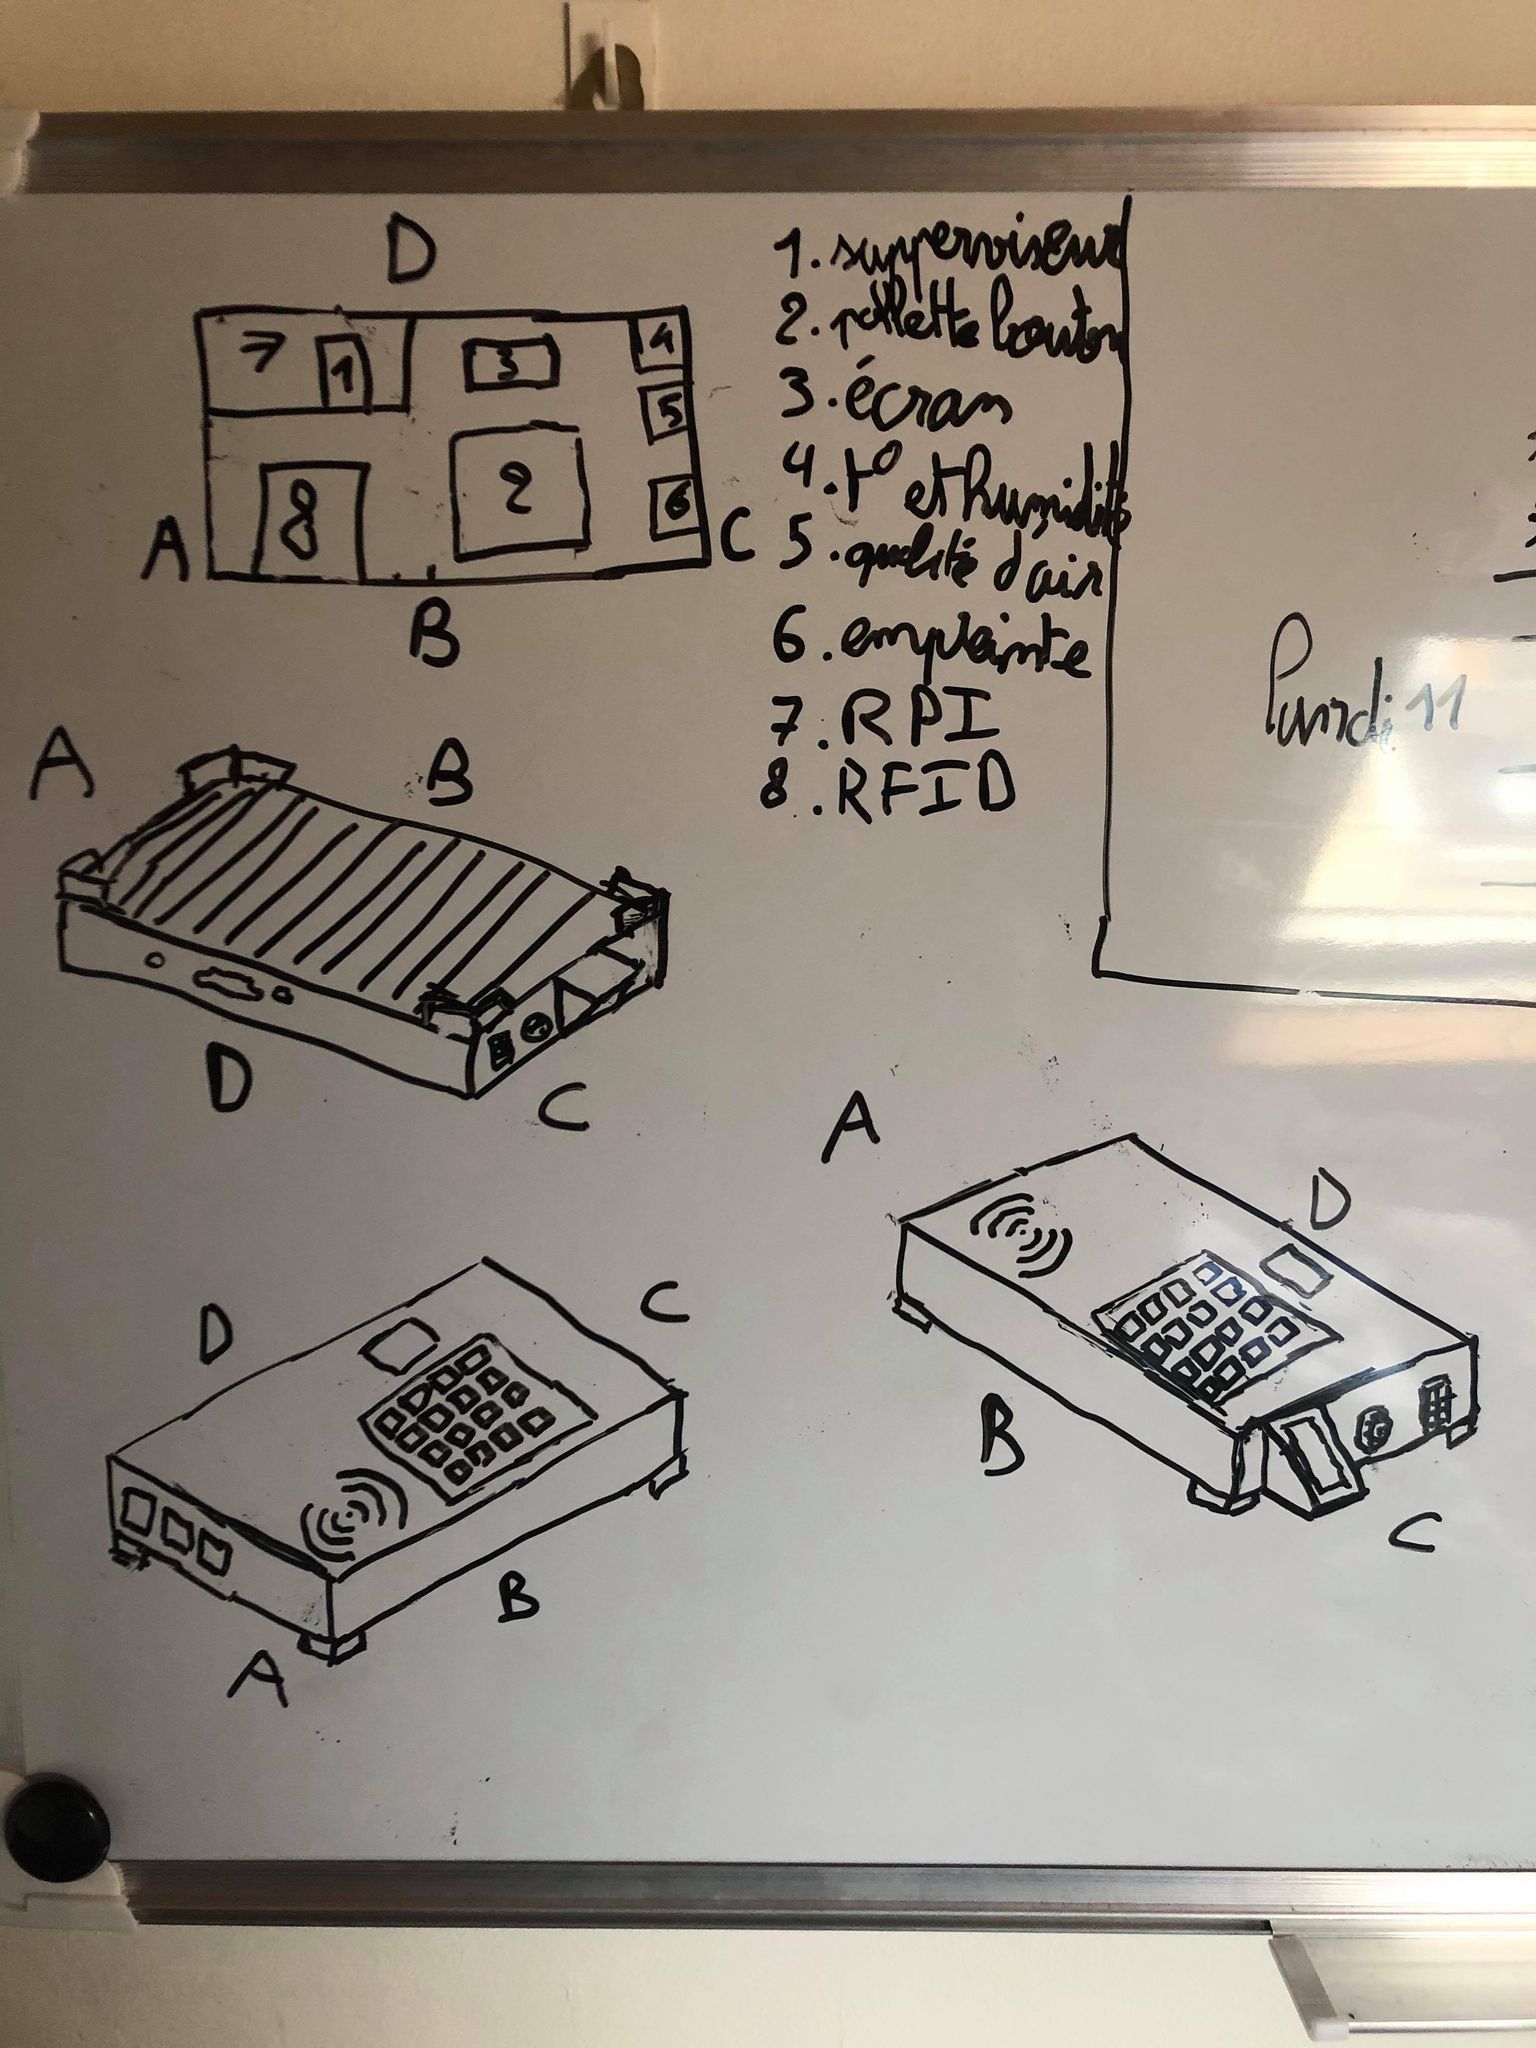 D
7
1
3
4
5
8
2
6
A
C
B
1. supperviseur
2. bouton
3. écran
4. t° et humidité
5. qualité d'air
6. empreinte
7. RPI
8. RFID
Lundi 11
A
B
D
C
A
D
B
C
D
C
B
A